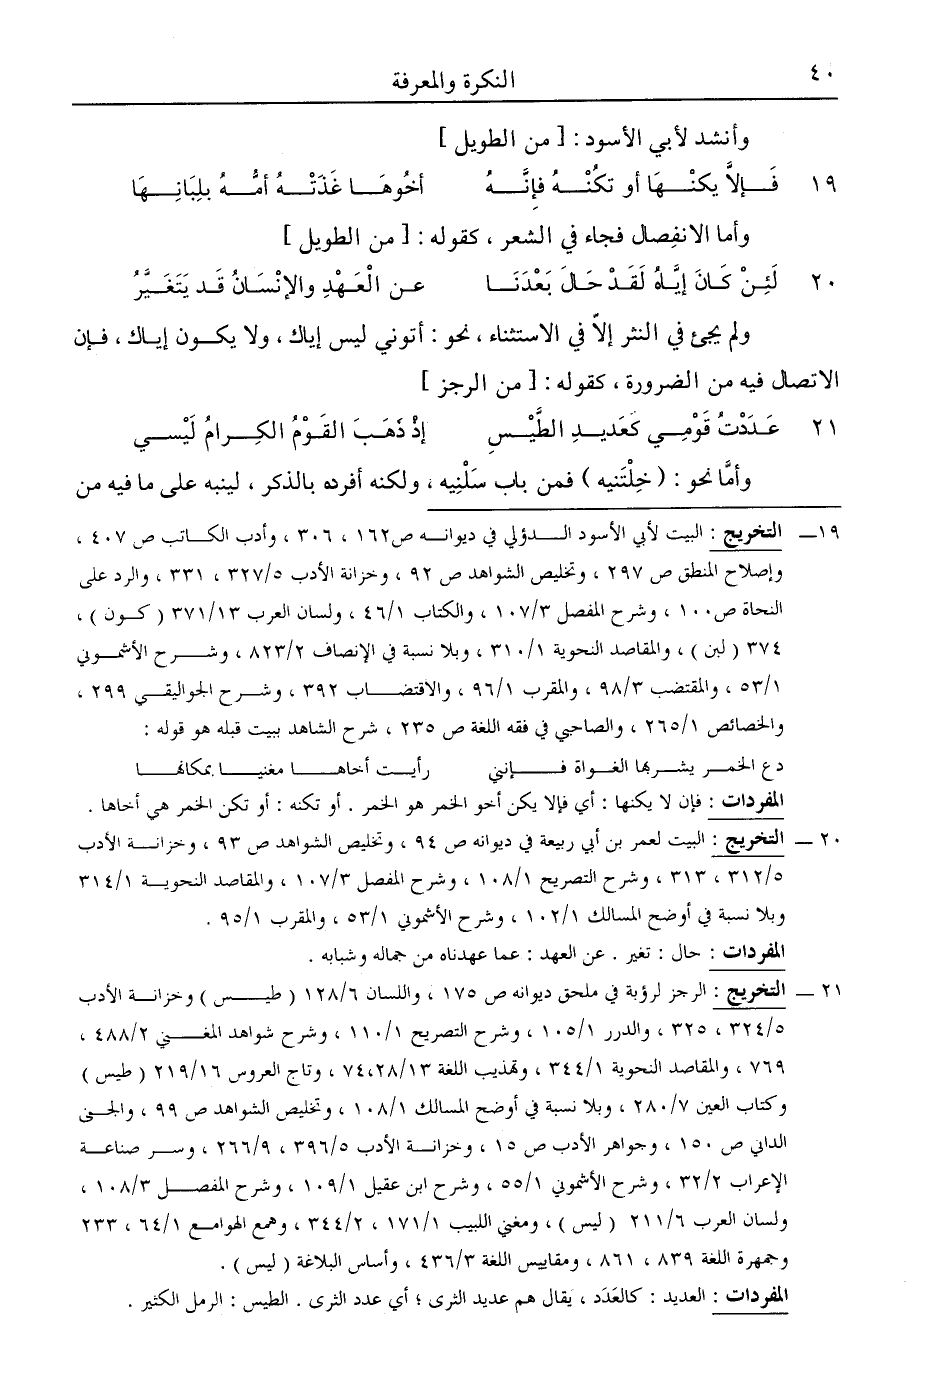 ٤٠
النكرة والمعرفة
وأنشد لأبي الأسود : [ من الطويل ]
١٩ فَـإلاَّ يكنْـهَا أو تكُنْـهُ فإنَّـهُ أخُوهَـا غَذَتْـهُ أمُّـهُ بلِبَانِـهَا
وأما الانفِصال فجاء في الشعر ، كقوله : [ من الطويل ]
٢٠ لَئِنْ كَانَ إيَّاهُ لَقَدْ حَالَ بَعْدَنَـا عن الْعَهْدِ والإنْسَانُ قَد يَتَغَيَّرُ
ولم يجئ في النثر إلاّ في الاستثناء ، نحو : أتوني ليس إياك ، ولا يكون إياك ، فإن
الاتصال فيه من الضرورة ، كقوله : [ من الرجز ]
٢١ عَدَدْتُ قَوْمِي كَعَديدِ الطَّيْسِ إذْ ذَهَبَ القَوْمُ الكِـرامُ لَيْسي
وأمَّا نحو : ( خِلْتَنيه ) فمن باب سَلْنِيه ، ولكنه أفرده بالذكر ، لينبه على ما فيه من
١٩ــ التخريج : البيت لأبي الأسود الــدؤلي في ديوانــه ص١٦٢ ، ٣٠٦ ، وأدب الكــاتب ص ٤٠٧ ،
وإصلاح المنطق ص ٢٩٧ ، وتخليص الشواهد ص ٩٢ ، وخزانة الأدب ٣٢٧/٥ ، ٣٣١ ، والرد على
النحاة ص١٠٠ ، وشرح المفصل ١٠٧/٣ ، والكتاب ٤٦/١ ، ولسان العرب ٣٧١/١٣ ( كــون ) ،
٣٧٤ ( لبن ) ، والمقاصد النحوية ٣١٠/١ ، وبلا نسبة في الإنصاف ٨٢٣/٢ ، وشــرح الأشموني
٥٣/١ ، والمقتضب ٩٨/٣ ، والمقرب ٩٦/١ ، والاقتضــاب ٣٩٢ ، وشــرح الجواليقي ٢٩٩ ،
والخصائص ٢٦٥/١ ، والصاحبي في فقه اللغة ص ٢٣٥ ، شرح الشاهد ببيت قبله هو قوله :
دع الخمــر يشــربها الغــواة فــإنني رأيــت أخاهــا مغنيــا بمكانهــا
المفردات : فإن لا يكنها : أي فإلا يكن أخو الخمر هو الخمر . أو تكنه : أو تكن الخمر هي أخاها .
٢٠ ــ التخريج : البيت لعمر بن أبي ربيعة في ديوانه ص ٩٤ ، وتخليص الشواهد ص ٩٣ ، وخزانــة الأدب
٣١٢/٥ ، ٣١٣ ، وشرح التصريح ١٠٨/١ ، وشرح المفصل ١٠٧/٣ ، والمقاصد النحويــة ٣١٤/١
وبلا نسبة في أوضح المسالك ١٠٢/١ ، وشرح الأشموني ٥٣/١ ، والمقرب ٩٥/١ .
المفردات : حال : تغير . عن العهد : عما عهدناه من جماله وشبابه .
٢١ ــ التخريج : الرجز لرؤبة في ملحق ديوانه ص ١٧٥ ، واللسان ١٢٨/٦ ( طيــس ) وخزانــة الأدب
٣٢٤/٥ ، ٣٢٥ ، والدرر ١٠٥/١ ، وشرح التصريح ١١٠/١ ، وشرح شواهد المغــني ٤٨٨/٢ ،
٧٦٩ ، والمقاصد النحوية ٣٤٤/١ ، وتهذيب اللغة ٧٤،٢٨/١٣ ، وتاج العروس ٢١٩/١٦ ( طيس )
وكتاب العين ٢٨٠/٧ ، وبلا نسبة في أوضح المسالك ١٠٨/١ ، وتخليص الشواهد ص ٩٩ ، والجنى
الداني ص ١٥٠ ، وجواهر الأدب ص ١٥ ، وخزانــة الأدب ٣٩٦/٥ ، ٢٦٦/٩ ، وســر صناعــة
الإعراب ٣٢/٢ ، وشرح الأشموني ٥٥/١ ، وشرح ابن عقيل ١٠٩/١ ، وشرح المفصــل ١٠٨/٣ ،
ولسان العرب ٢١١/٦ ( ليس ) ، ومغني اللبيب ١٧١/١ ، ٣٤٤/٢ ، وهمع الهوامــع ٦٤/١ ، ٢٣٣
وجمهرة اللغة ٨٣٩ ، ٨٦١ ، ومقاييس اللغة ٤٣٦/٣ ، وأساس البلاغة ( ليس ) .
المفردات : العديد : كالعَدَد ، يقال هم عديد الثرى ؛ أي عدد الثرى . الطيس : الرمل الكثير .